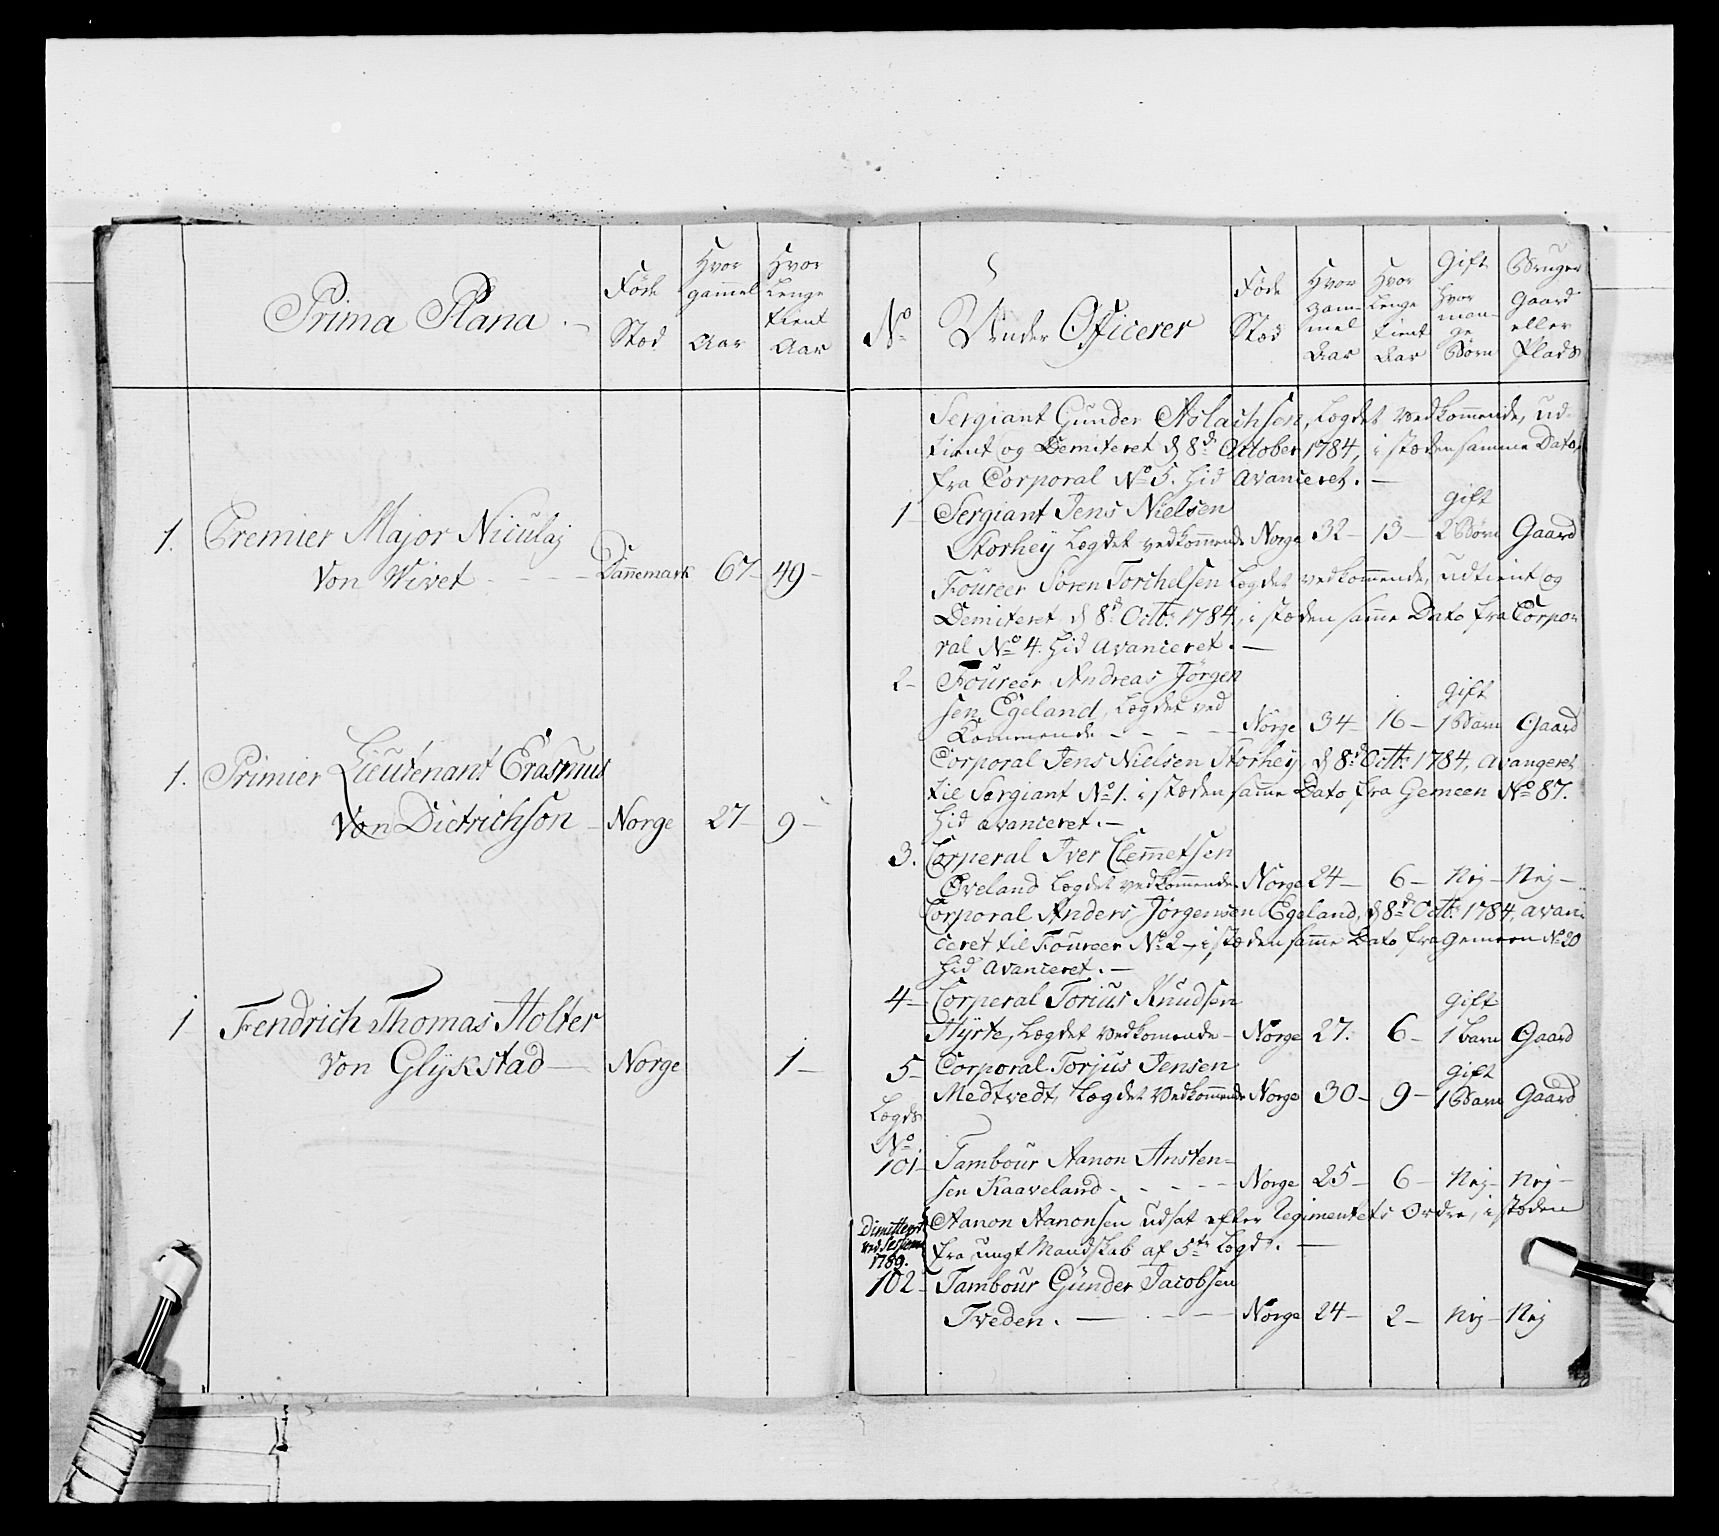 Prima Plana.
Føde
Stæd
Hvor
gammel
Aar
Hvor
Lenge
tient
Aar
1. Premier Major Niculaj
Von Wivet - - - - Dannemark 67- 49-
1. Primier Lieutenant Erasmus
Von Dietrichson - Norge 27- 9-
1 Fendrich Thomas Holter
Von Glÿkstad - Norge 1-
No
Under Officerer
Føde
Stæd
Hvor
gam-
mel
Aar
Hvor
Lenge
tient
Aar
Gift
hvor
man-
ge
Børn
Bruger
Gaard
eller
Plads
Sergiant Gunder Aslachsen, Lægdet vedkommende, ud-
tient og Demiteret d 8de October 1784, i stæden samme Dato,
fra Corporal No 5. hid avanceret. -
1- Sergiant Jens Nielsen
Storhey Lægdet vedkommende Norge 32- 13- gift 2 Børn Gaard
Foureer Søren Torchelsen Lægdet vedkommende, udtient og
Demiteret d 8d Octb: 1784, i stæden samme Dato fra Corpo-
ral No 4. hid avanceret. -
2- Foureer Andreas Jørgen
sen Egeland, Lægdet ved
Kommende - - - - Norge 34- 16- gift 1 Barn Gaard
Corporal Jens Nielsen Storhey, d 8d Octb: 1784, avangeret
til Sergiant No 1. i stæden samme Dato fra Gemeen No 87.
hid avanceret. -
3. Corperal Iver Clemetsen
Øveland Lægdet vedkommende Norge 24- 6- Nej- Nej-
Corporal Anders Jørgensen Egeland, d 8d Octb: 1784, avan-
ceret til Foureer No 2-, i stæden samme Dato fra Gemeen No 20
hid avanceret. -
4- Corperal Torius Knudsen
Hÿrte, Lægdet vedkomende- Norge 27. 6- gift 1 barn Gaard
5- Corporal Torjus Jensen
Medtvedt, Lægdet vedkommende Norge 30- 9- gift 1 Barn Gaard
Lægds
No
101- Tambour Aanon Ansten-
sen Kaaveland - - - - - Norge 25- 6- Nej- Nej-
Dimitteret
ved Sessionen
1789.
Aanon Aanonsen udsat efter Regimentets Ordre, i stæden
fra ungt Mandskab af 5te Lægd. -
102- Tambour Gunder Jacobsen
Tveden. - - - - Norge 24- 2- Nej- Nej